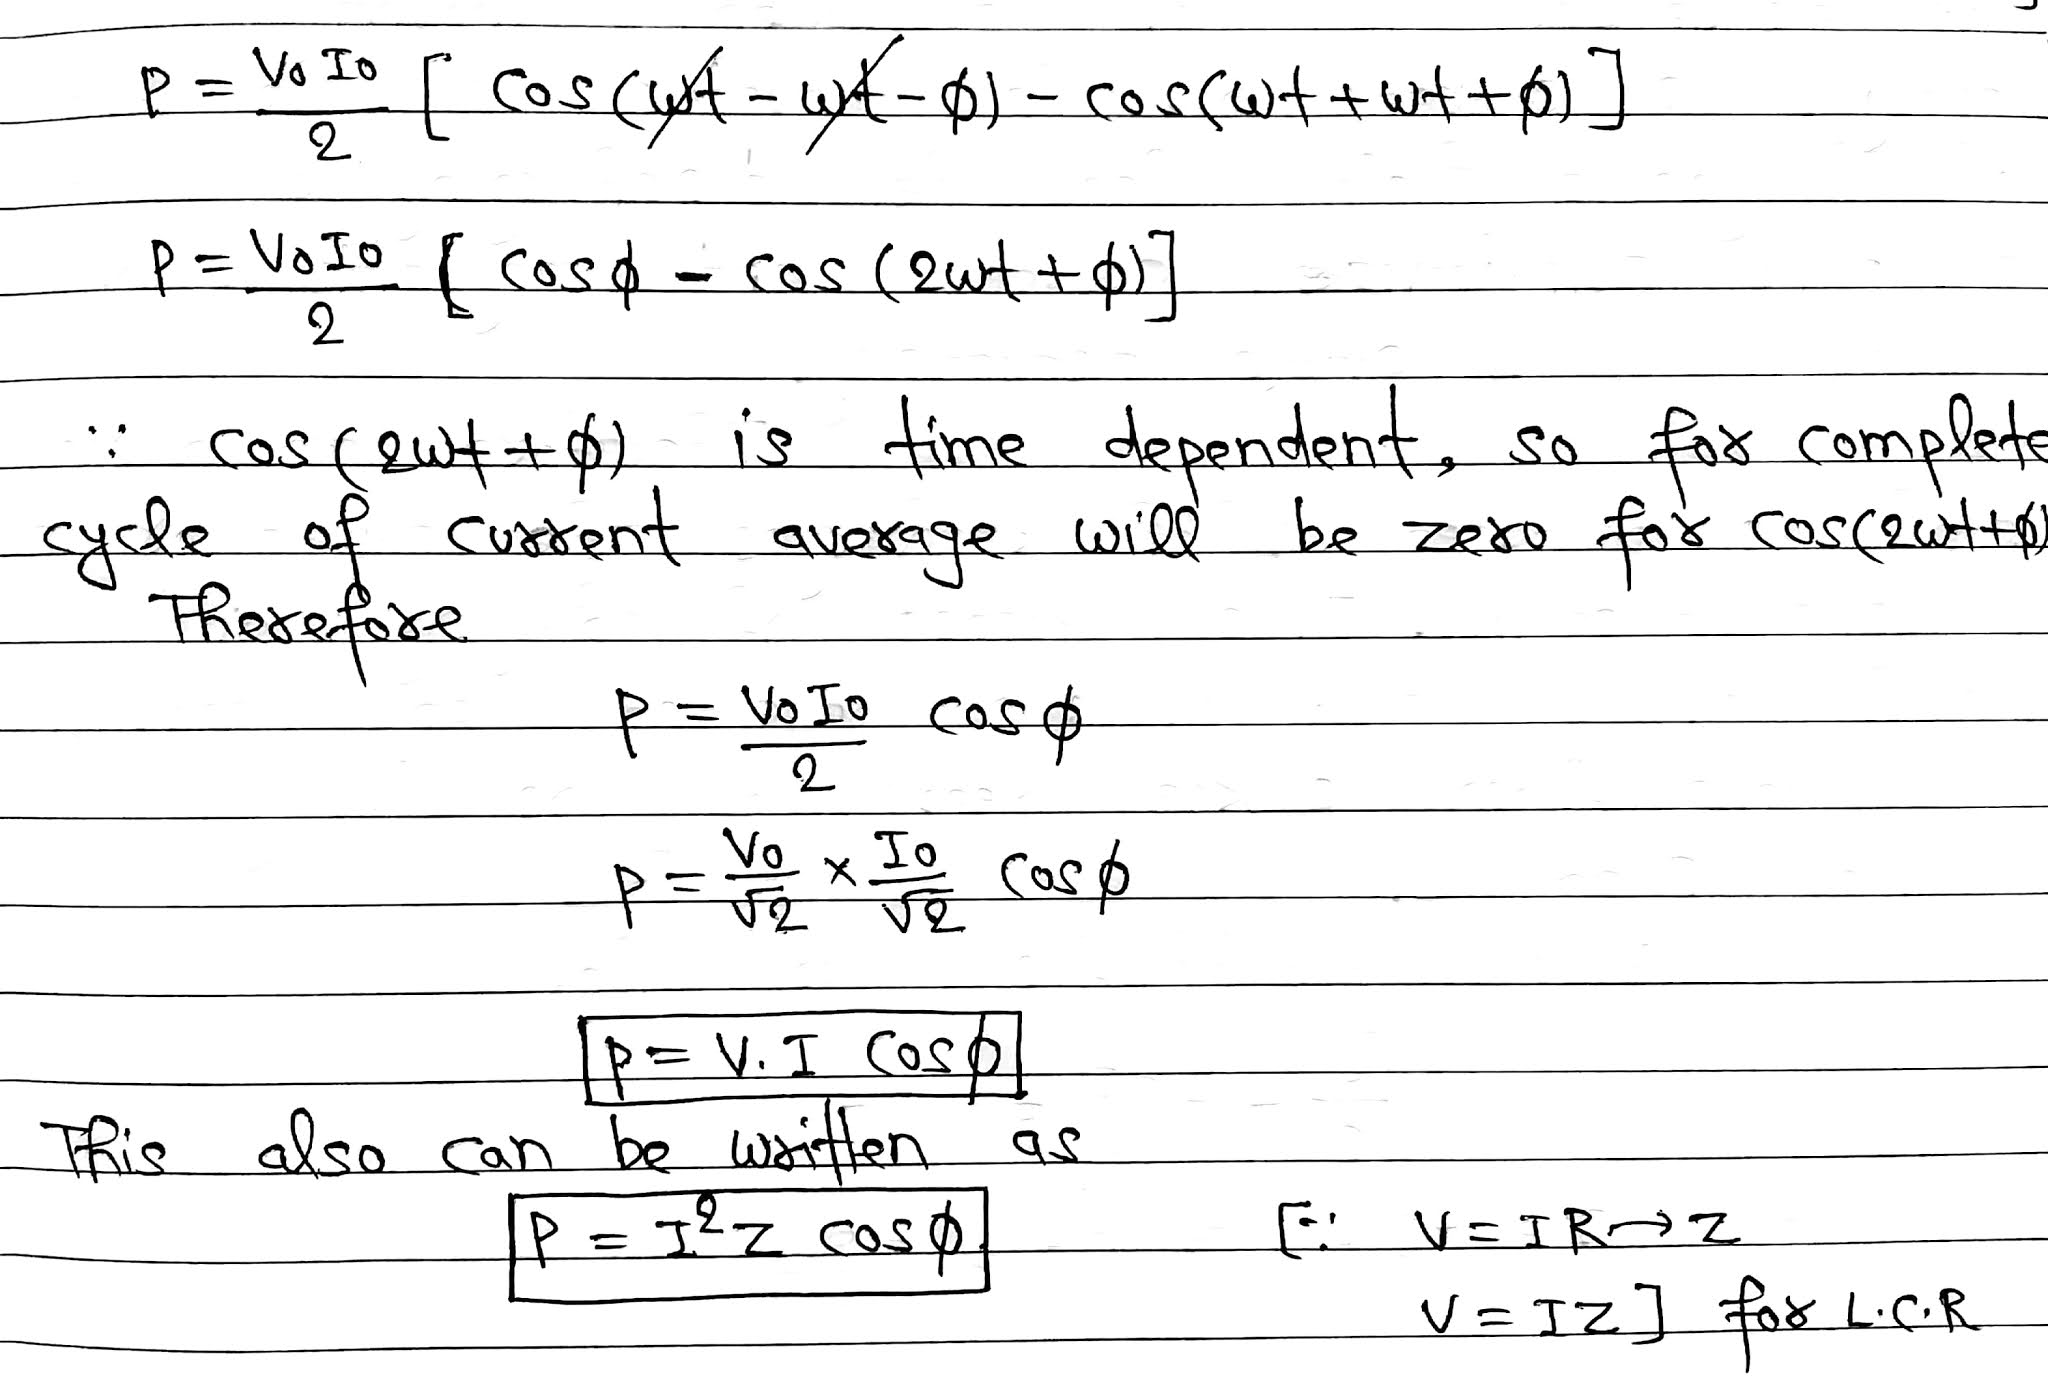 P = V₀I₀/2 [ cos(ωt - ωt - φ) - cos(ωt + ωt + φ)]
P = V₀I₀/2 [ cosφ - cos(2ωt + φ)]
∵ cos(2ωt + φ) is time dependent, so for complete
cycle of current average will be zero for cos(2ωt+φ)
Therefore
P = V₀I₀/2 cosφ
P = V₀/√2 × I₀/√2 cosφ
P = V.I cosφ
This also can be written as
P = I²Z cosφ [∵ V = IR → Z
V = IZ] for L.C.R